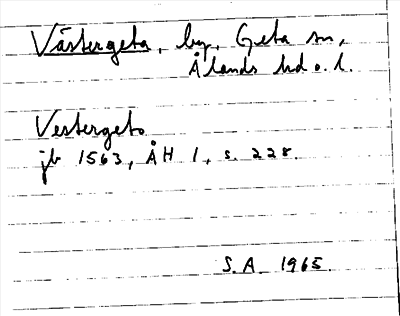 Västergeta, by, Geta sn,
Ålands hd o. l.
Vestergeta
jb 1563, ÅH 1, s. 228.
S.A. 1965.